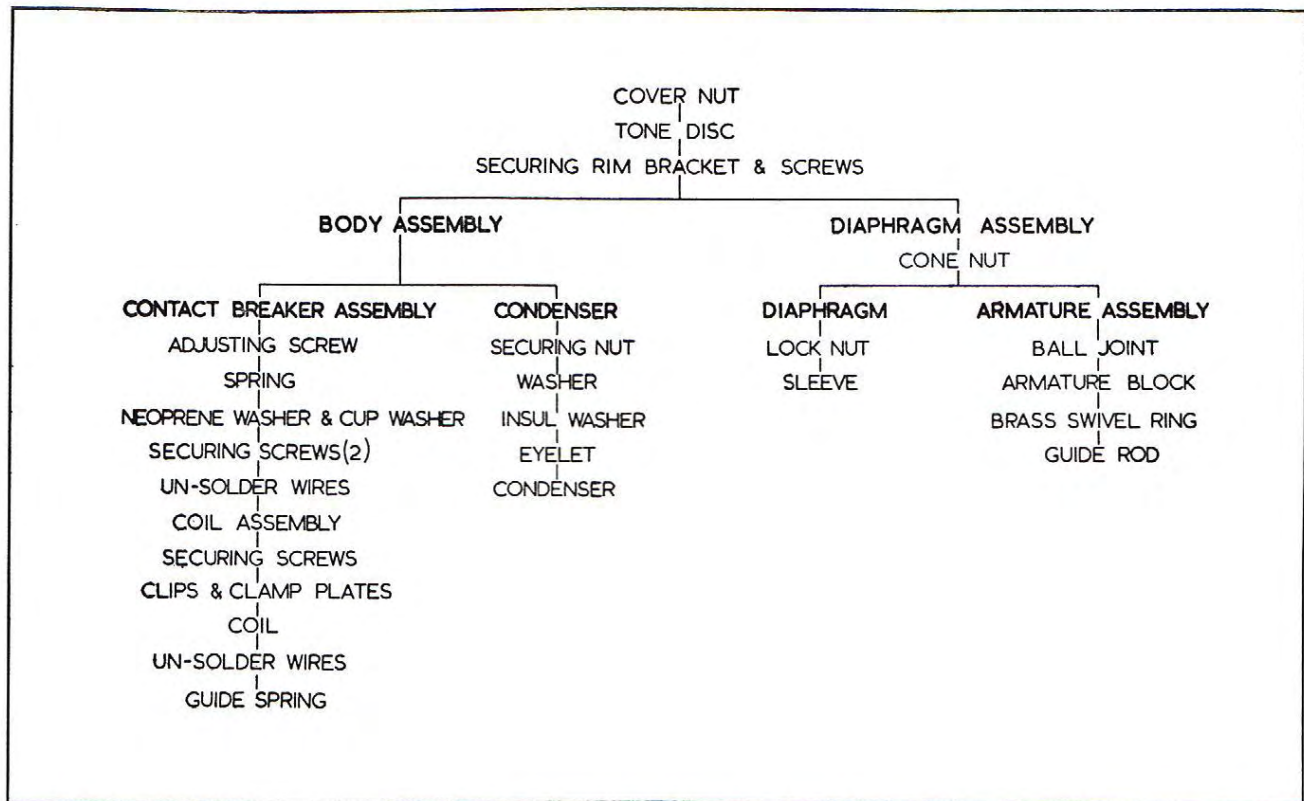 COVER NUT
TONE DISC
SECURING RIM BRACKET & SCREWS
BODY ASSEMBLY
DIAPHRAGM ASSEMBLY
CONE NUT
CONTACT BREAKER ASSEMBLY
ADJUSTING SCREW
SPRING
NEOPRENE WASHER & CUP WASHER
SECURING SCREWS(2)
UN-SOLDER WIRES
COIL ASSEMBLY
SECURING SCREWS
CLIPS & CLAMP PLATES
COIL
UN-SOLDER WIRES
GUIDE SPRING
CONDENSER
SECURING NUT
WASHER
INSUL WASHER
EYELET
CONDENSER
DIAPHRAGM
LOCK NUT
SLEEVE
ARMATURE ASSEMBLY
BALL JOINT
ARMATURE BLOCK
BRASS SWIVEL RING
GUIDE ROD